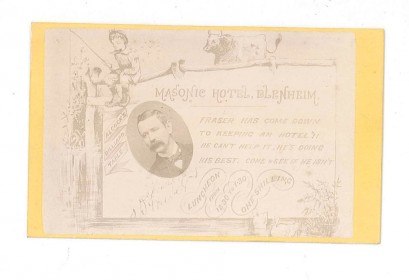 MASONIC HOTEL, BLENHEIM
FRASER HAS COME DOWN
TO KEEPING AN HOTEL!!
HE CAN'T HELP IT. HE'S DOING
HIS BEST. COME & SEE IF HE ISN'T
LUNCHEON
12.30 TO 1.30
ONE SHILLING